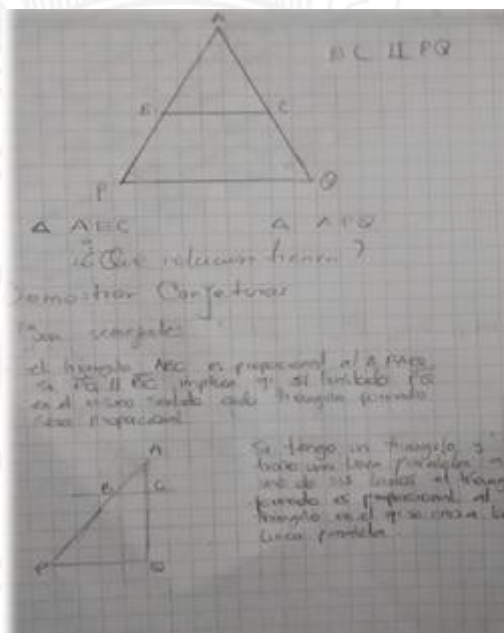 A
BC || PQ
B C
P Q
Δ ABC Δ APQ
¿Que relacion tienen?
Demostrar Conjeturas
Son semejantes
el triangulo ABC es proporcional al Δ
si PQ || BC implica q' si
en el mismo sentido cada triangulo formado
sera proporcional
A
B C
P Q
Si tengo un triangulo y
trazo una linea paralela a
uno de sus lados el triangulo
formado es proporcional al
triangulo en el q' se traza la
linea paralela